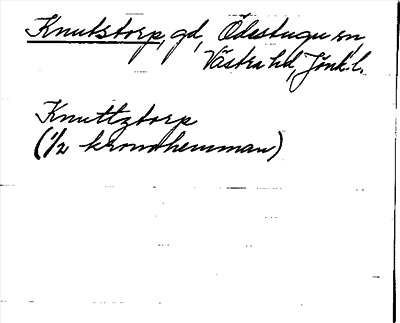 Knutstorp, gd, Ödestugu sn
Västra hd, Jönk. l.
Knuttztorp
(1/2 kronohemman)